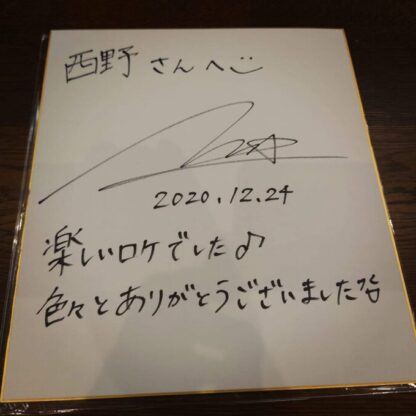 西野さんへ
2020.12.24
楽しいロケでした♪
色々とありがとうございました